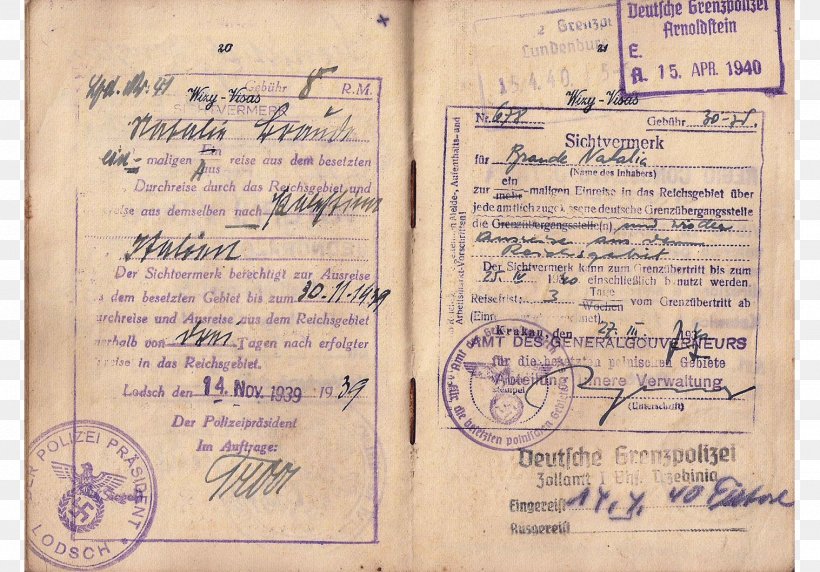 20
Wizy-Visas
Gebühr 8 R.M.
SICHTVERMERK
Natalie Braude
ein- maligen Ein reise aus dem besetzten
aus
Durchreise durch das Reichsgebiet und
reise aus demselben nach Palästina
Italien
Der Sichtvermerk berechtigt zur Ausreise
s dem besetzten Gebiet bis zum 30.11.1939
urchreise und Ausreise aus dem Reichsgebiet
erhalb von drei Tagen nach erfolgter
reise in das Reichsgebiet.
Lodsch den 14. Nov. 1939 1939
Der Polizeipräsident
Im Auftrage:
DER POLIZEI PRÄSIDENT
LODSCH
2 Grenzpol
Lundenburg
15.4.40
Deutsche Grenzpolizei
Arnoldstein
E.
A. 15. APR. 1940
21
Wizy-Visas
Nr. 678 Gebühr
Sichtvermerk
für Braude Natalia
(Name des Inhabers)
zur ein mehr -maligen Einreise in das Reichsgebiet über
jede amtlich zugelassene deutsche Grenzübergangsstelle
die Grenzübergangsstelle(n) und wieder
Ausreise aus dem
Reichsgebiet
Der Sichtvermerk kann zum Grenzübertritt bis zum
25. IV 1940 einschließlich benutzt werden.
Reisefrist: 3 Tage Wochen vom Grenzübertritt ab
Krakau, den 27. III.
AMT DES GENERALGOUVERNEURS
für die besetzten polnischen Gebiete
Abteilung Innere Verwaltung
(Unterschrift)
für die besetzten polnischen Gebiete
Deutsche Grenzpolizei
Zollamt I Bhf. Trzebinia
Eingereist 14. 4. 40
Ausgereist